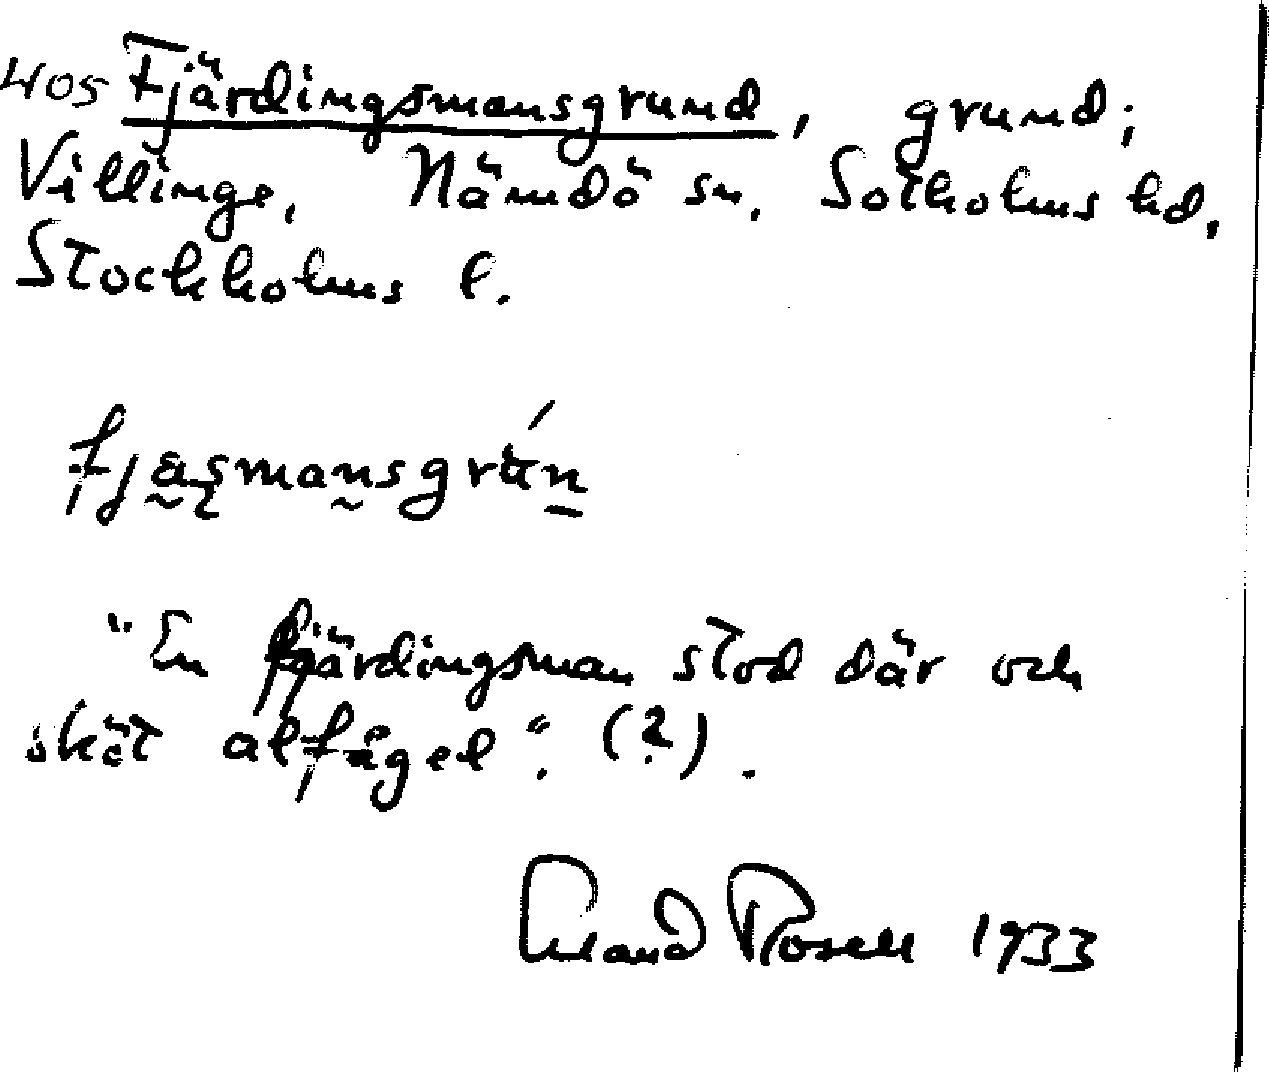 405 Fjärdingsmansgrund, grund;
Villinge, Nämdö sn, Sotholms hd,
Stockholms l.
fjäşmansgrún
"En fjärdingsman stod där och
sköt alfågel". (?).
Erland Rosell 1933